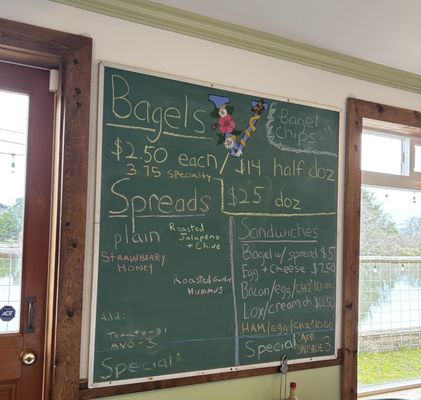 Bagels
V
Bagel
Chips
$2.50 each / $14 half doz
3.75 Specialty
$25 doz
Spreads
plain
Roasted
Jalapeño
+ Chive
Strawberry
Honey
Roasted Garlic
Hummus
Add:
Tomato - $1
Avo - 3
Special:
Sandwiches
Bagel w/ spread $5
Egg + Cheese $7.50
Bacon/egg/chz 10.00
Lox/cream/chz $12.50
Ham/egg/chz $10.00
Special
Add
Sausage 3
ADT